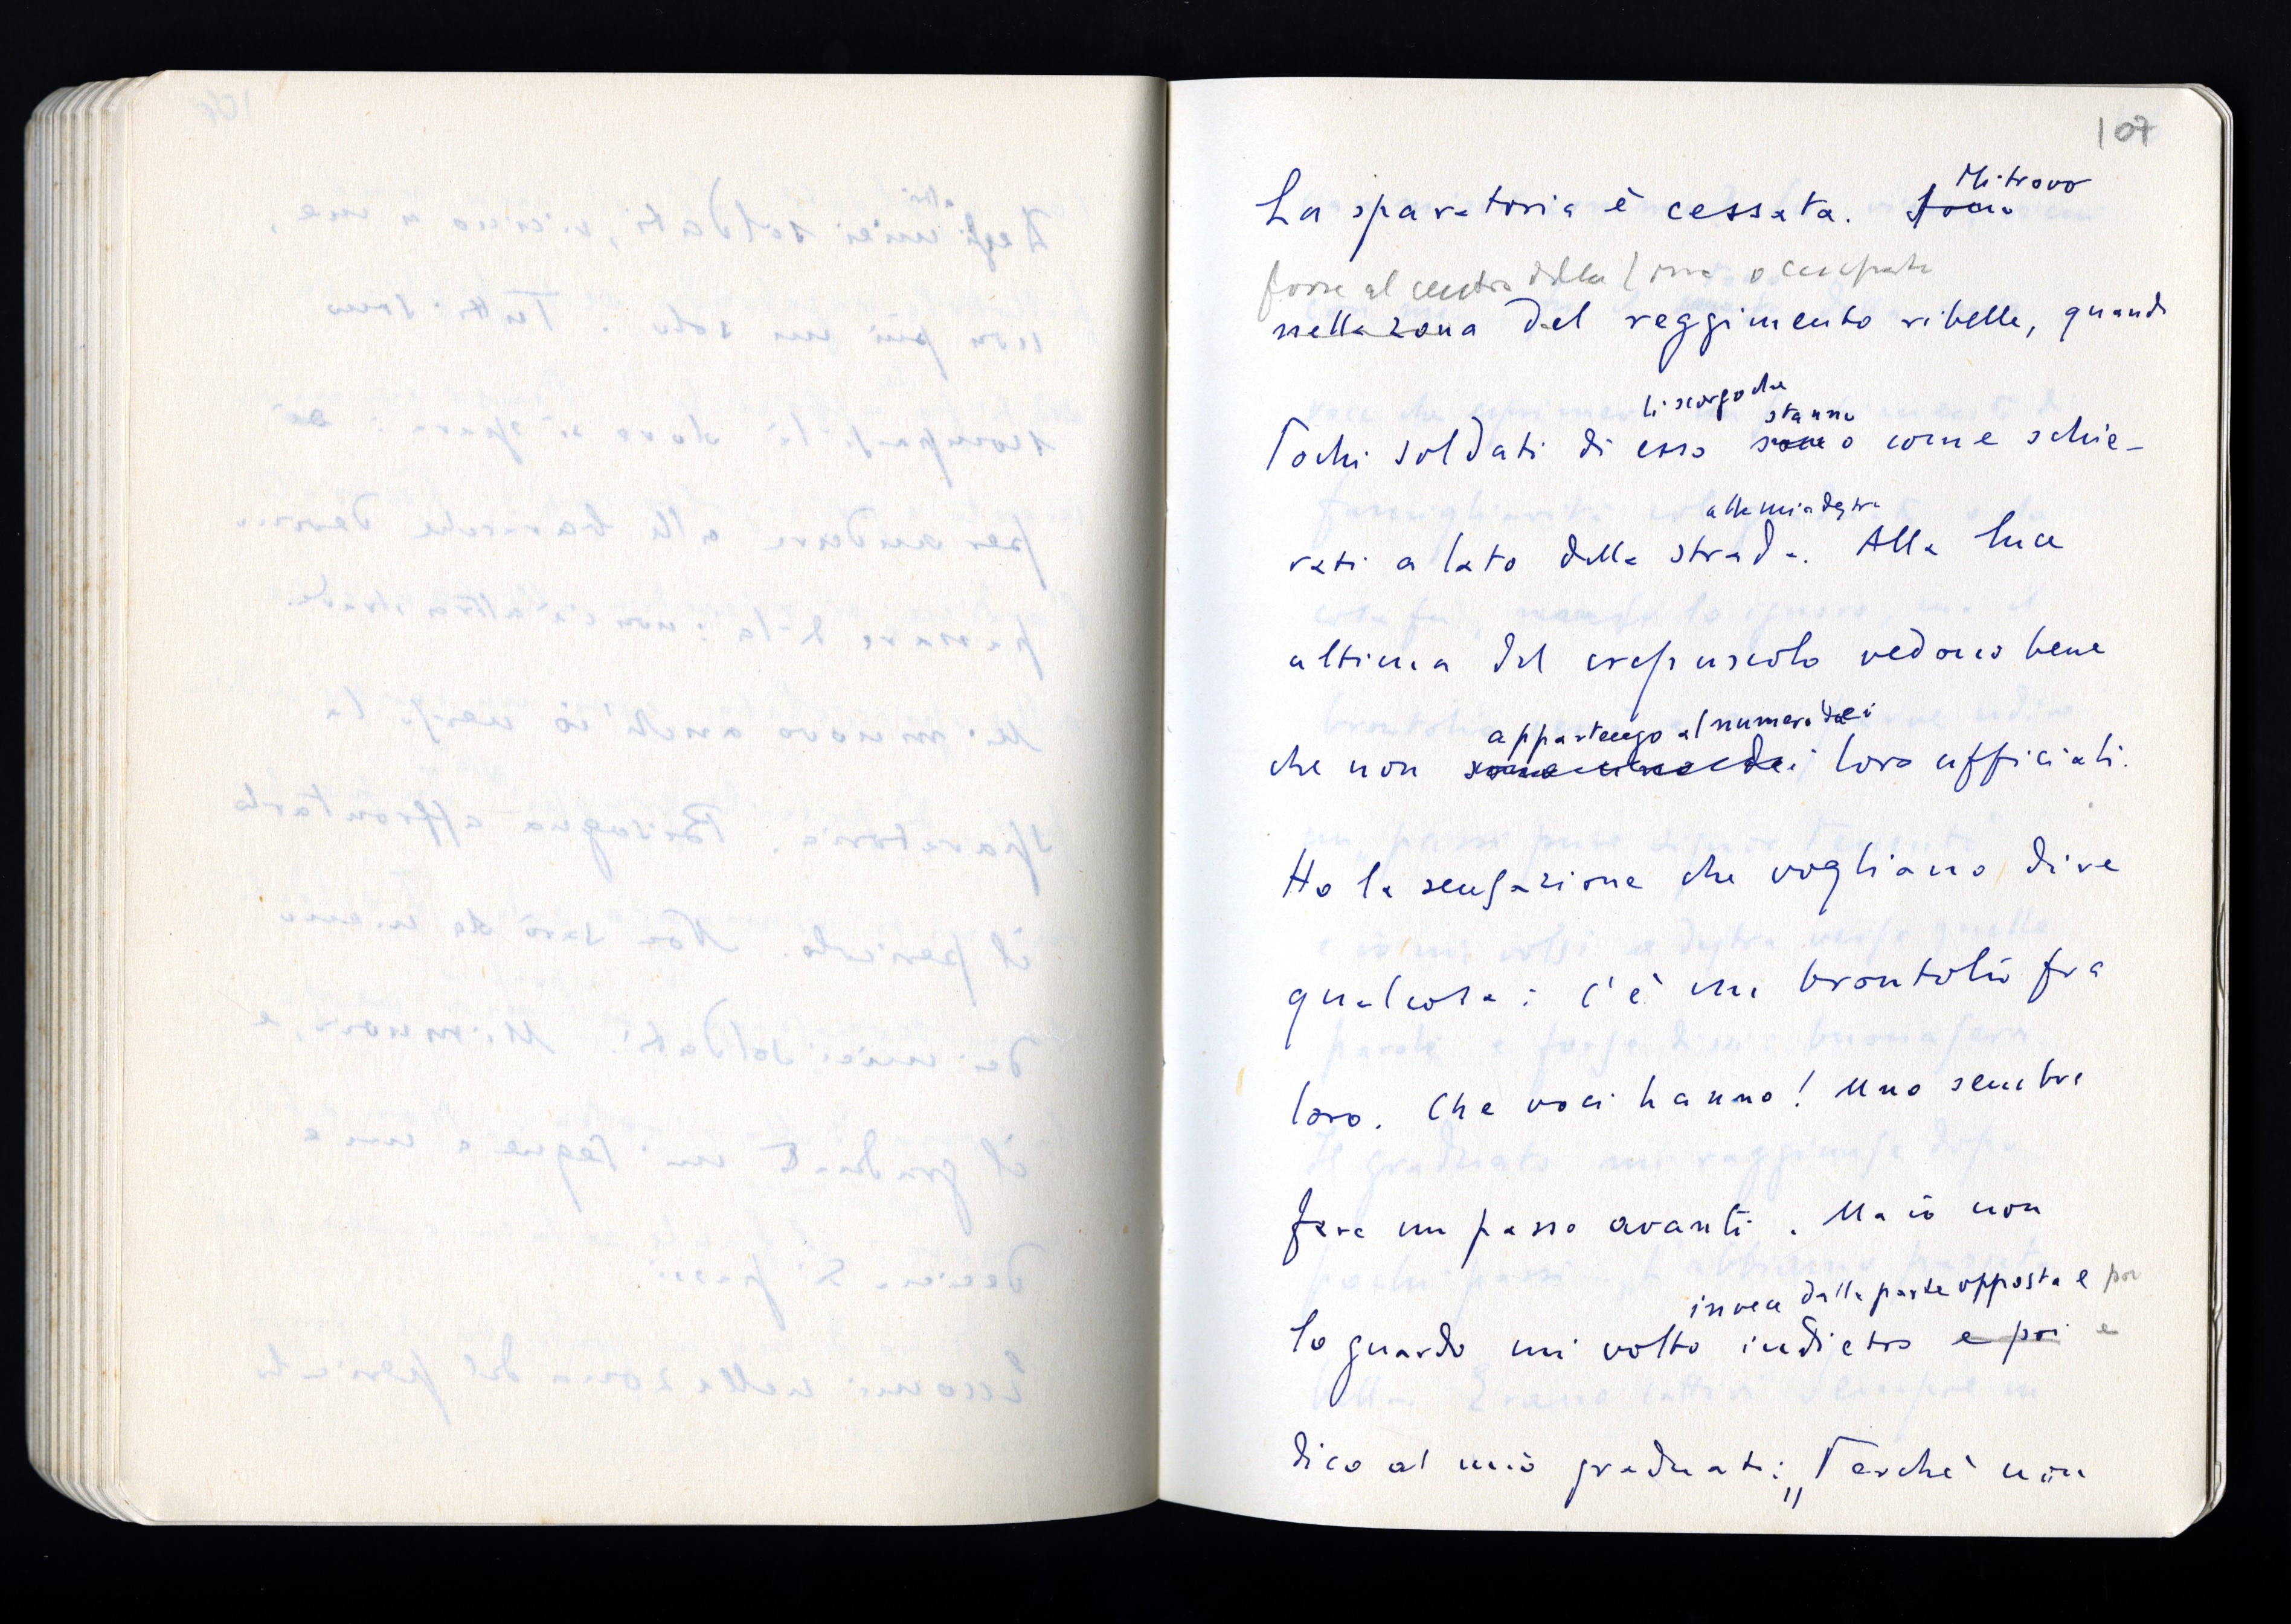 107
Mitrovo
La sparatoria è cessata. Sono
forse al centro della zona occupata
nella zona del reggimento ribelle, quando
li scorgo che
stanno
Pochi soldati di esso sono come schie-
alla mia destra
rati a lato della strada. Alla luce
ultima del crepuscolo vedono bene
appartengo al numero dei
che non sono uno dei loro ufficiali.
Ho la sensazione che vogliano dire
qualcosa: c'è un brontolìo fra
loro. Che voci hanno! Uno sembra
fare un passo avanti. Ma io non
invece dalla parte opposta e poi
lo guardo mi volto indietro e poi e
dico al mio graduato: „Perché non